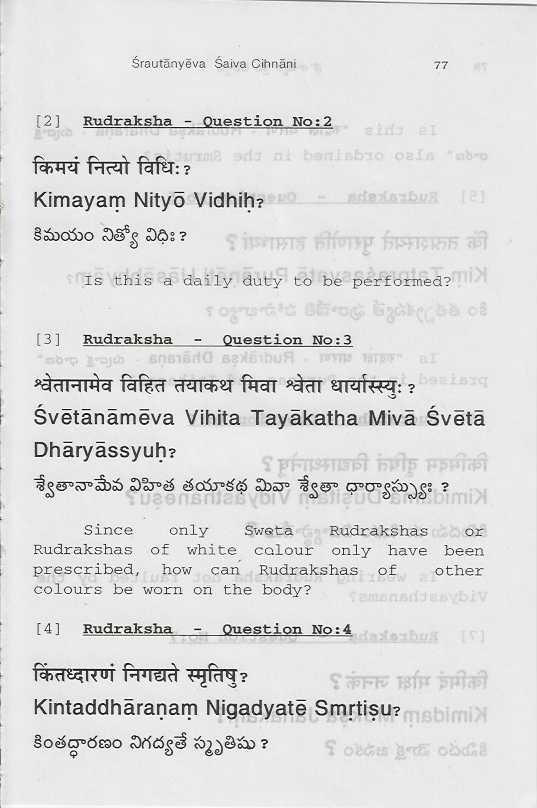 Śrautānyēva Śaiva Cihnāni 77
[2] Rudraksha - Question No:2
किमयं नित्यो विधिः?
Kimayaṃ Nityō Vidhiḥ?
కిమయం నిత్యో విధిః?
Is this a daily duty to be performed?
[3] Rudraksha - Question No:3
श्वेतानामेव विहित तयाकथ मिवा श्वेता धार्यास्स्युः?
Śvētānāmēva Vihita Tayākatha Mivā Śvētā
Dhāryāssyuḥ?
శ్వేతానామేవ విహిత తయాకథ మివా శ్వేతా ధార్యాస్స్యుః ?
Since only Sweta Rudrakshas or
Rudrakshas of white colour only have been
prescribed, how can Rudrakshas of other
colours be worn on the body?
[4] Rudraksha - Question No:4
किंतध्दारणं निगद्यते स्मृतिषु?
Kintaddhāraṇaṃ Nigadyatē Smṛtiṣu?
కింతద్ధారణం నిగద్యతే స్మృతిషు ?